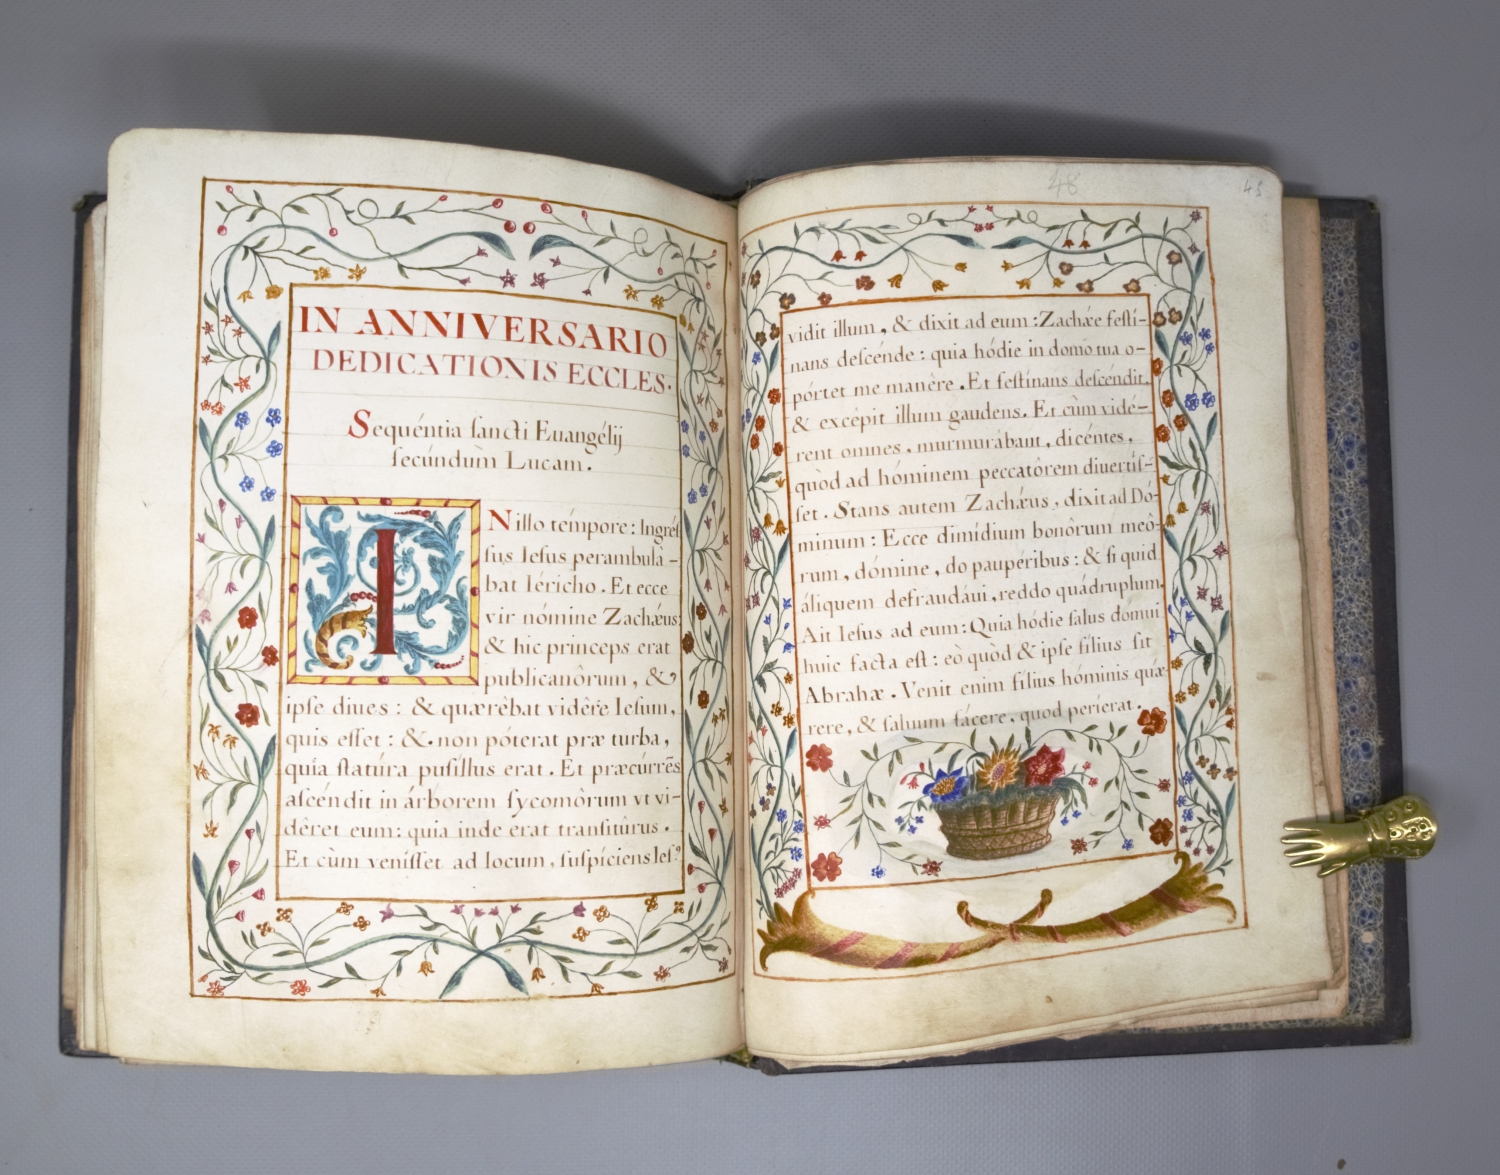 IN ANNIVERSARIO
DEDICATIONIS ECCLES.
Sequéntia ſancti Euangélij
ſecúndum Lucam.
I
N illo témpore: Ingreſ
ſus Ieſus perambulâ-
bat Iéricho. Et ecce
vir nómine Zachǽus:
& hic princeps erat
publicanôrum, &
ipſe diues: & quærêbat vidêre Ieſum,
quis eſſet: & non póterat præ turba,
quia ſtatúra puſillus erat. Et præcúrrẽs
aſcéndit in árborem ſycomôrum vt vi-
dêret eum: quia inde erat tranſitûrus.
Et cùm veniſſet ad locum, ſuſpíciens Ieſ9
48
45
vidit illum, & dixit ad eum: Zachǽe feſti-
nans deſcénde: quia hódie in domo tua o-
pórtet me manêre. Et feſtínans deſcéndit,
& excêpit illum gaudens. Et cùm vidé-
rent omnes, murmurábant, dicéntes,
quòd ad hóminem peccatôrem diuertíſ-
ſet. Stans autem Zachǽus, dixit ad Do-
minum: Ecce dimídium bonôrum meó-
rum, dómine, do paupéribus: & ſi quid
áliquem defraudáui, reddo quádruplum.
Ait Ieſus ad eum: Quia hódie ſalus dómui
huic facta eſt: eò quòd & ipſe fílius ſit
Abrahæ. Venit enim fílius hóminis quæ-
rere, & ſaluum fácere, quod períerat.